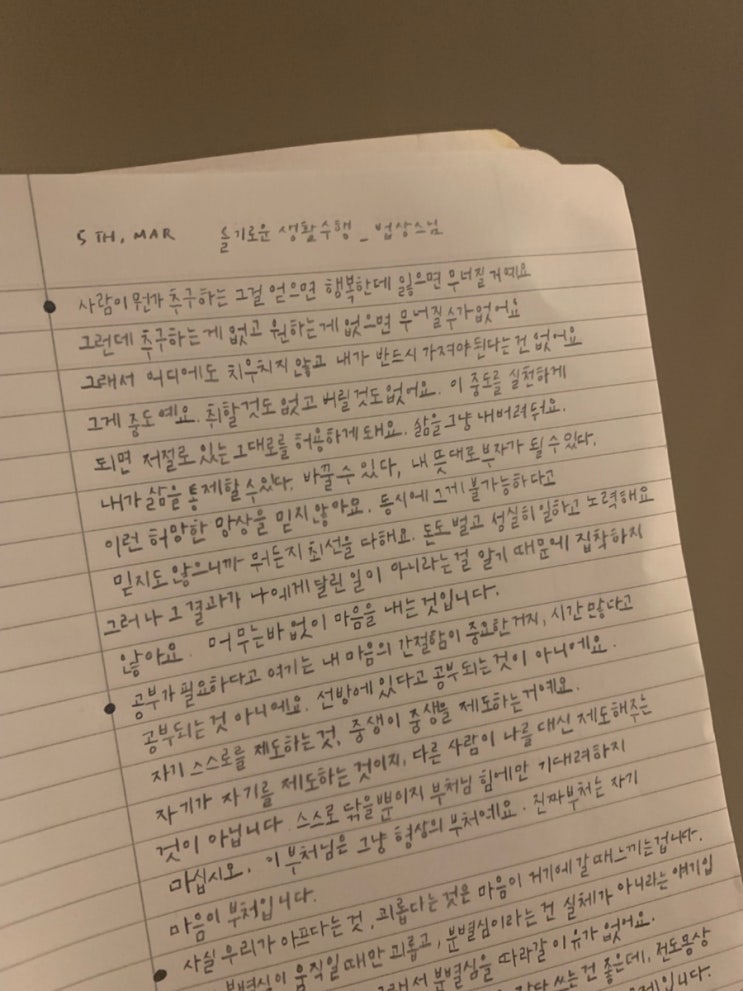 5 TH, MAR 슬기로운 생활수행 _ 법상스님
사람이 뭔가 추구하는 그걸 얻으면 행복한데 잃으면 무너질거예요
그런데 추구하는게 없고 원하는게 없으면 무너질수가없어요
그래서 어디에도 치우치지 않고 내가 반드시 가져야된다는건 없어요
그게 중도예요. 취할것도 없고 버릴것도없어요. 이 중도를 실천하게
되면 저절로 있는 그대로를 허용하게 돼요. 삶을 그냥 내버려둬요.
내가 삶을 통제할 수있다. 바꿀 수 있다, 내 뜻대로부자가 될 수 있다.
이런 허망한 망상을 믿지 않아요. 동시에 그게 불가능하다고
믿지도 않으니까 뭐든지 최선을 다해요. 돈도 벌고 성실히 일하고 노력해요
그러나 그 결과가 나에게 달린 일이 아니라는 걸 알기 때문에 집착하지
않아요. 머무는바 없이 마음을 내는 것입니다.
공부가 필요하다고 여기는 내 마음의 간절함이 중요한거지, 시간 많다고
공부되는 것 아니에요. 선방에 있다고 공부 되는 것이 아니에요.
자기 스스로를 제도하는 것, 중생이 중생을 제도하는거예요.
자기가 자기를 제도하는 것이지, 다른 사람이 나를 대신 제도해주는
것이 아닙니다. 스스로 닦을 뿐이지 부처님 힘에만 기대려하지
마십시오. 이 부처님은 그냥 형상의 부처예요. 진짜부처는 자기
마음이 부처입니다.
사실 우리가 아프다는 것, 괴롭다는 것은 마음이 거기에 갈 때 느끼는겁니다.
분별심이 움직일 때만 괴롭고, 분별심이라는 건 실체가 아니라는 얘기입
그래서 분별심을 따라갈 이유가 없어요.
갖다 쓰는 건 좋은데, 전도몽상